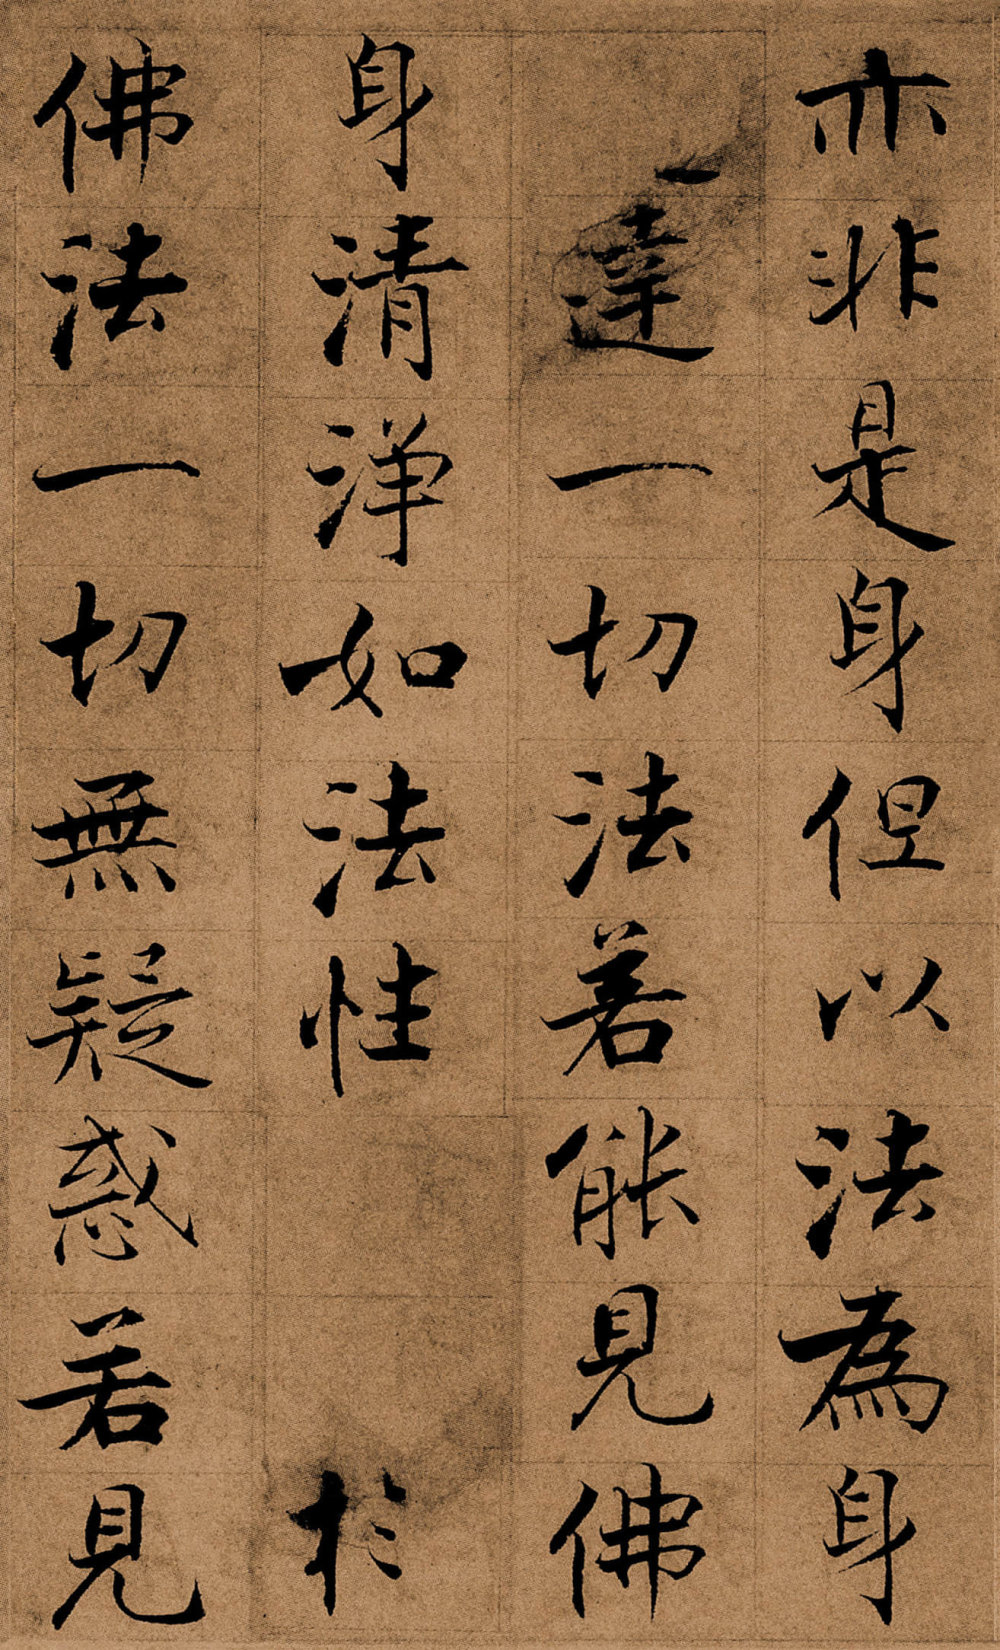 亦非是身但以法為身
達一切法若能見佛
身清淨如法性於
佛法一切無疑惑若見